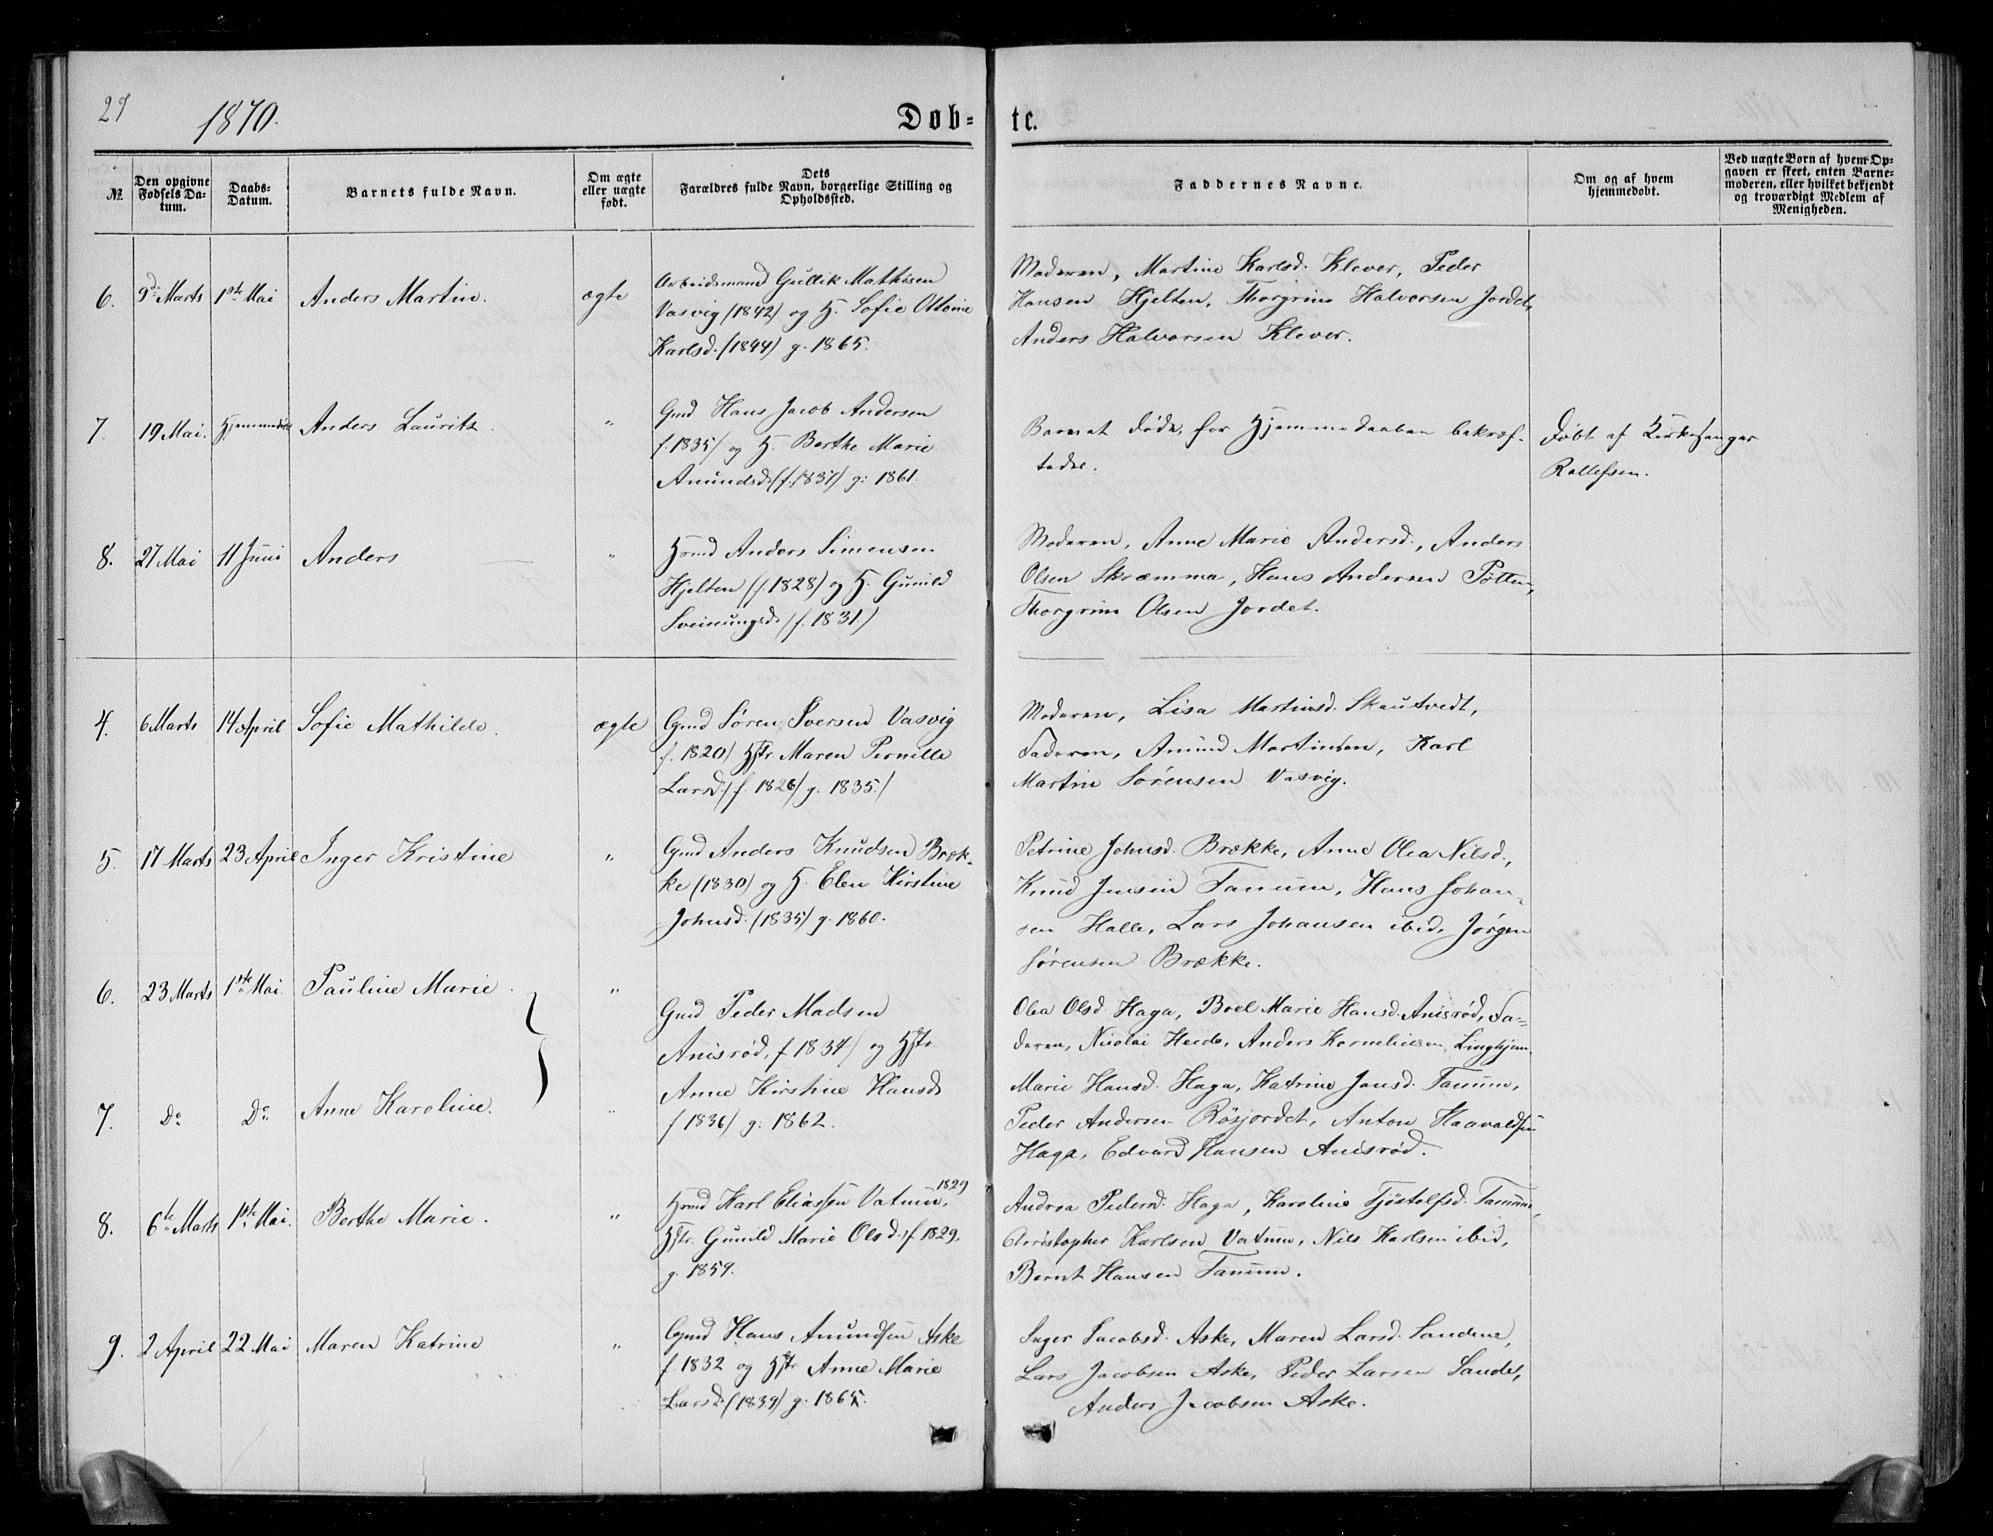 27
1870.
Døb-
te.
№
Den opgivne
Fødsels Da-
tum.
Daabs-
Datum.
Barnets fulde Navn.
Om ægte
eller uægte
født.
Dets
Forældres fulde Navn, borgerlige Stilling og
Opholdssted.
Faddernes Navne.
Om og af hvem
hjemmedøbt.
Ved uægte Born af hvem Op-
gaven er skeet, enten Barne-
moderen, eller hvilket bekjendt
og troværdigt Medlem af
Menigheden.
6.
9de Marts
1ste Mai
Anders Martin.
ægte
Arbeidsmand Gullik Mathisen
Vasvig (1842) og H. Sofie Ottomine
Karlsd. (1844) g. 1865.
Moderen, Martine Karlsd. Klever, Peder
Hansen Hjelten, Thorgrim Halvorsen Jordet,
Anders Halvorsen Klever.
7.
19 Mai.
Hjemmedøbt
Anders Laurits.
"
Gmd Hans Jacob Andersen
f. 1835/ og H. Berthe Marie
Amundsd. (f. 1837) g: 1861.
Barnet døde, før Hjemmedaaben bekræf-
tedes.
Døbt af Kirkesanger
Rollefsen.
8.
27 Mai
11 Juni
Anders
"
Hmd Anders Simensen
Hjelten (f. 1828) og H. Gunild
Sveinungsd. (f. 1831.)
Moderen, Anne Marie Andersd., Anders
Olsen Skræmma, Hans Andersen Pøtten,
Thorgrim Olsen Jordet.
4.
6 Marts
14 April
Sofie Mathilde.
ægte
Gmd Søren Iversen Vasvig
f. 1820/ Hstr. Maren Pernille
Larsd. (f. 1826) g. 1835.)
Moderen, Lisa Martinsd. Skautvedt,
Faderen, Amund Martinsen, Karl
Martin Sørensen Vasvig.
5.
17 Marts
23 April
Inger Kristine
"
Gmd Anders Knudsen Bræk-
ke (1830) og H. Elen Kirstine
Johnsd. (1835) g. 1860.
Petrine Johnsd. Brække, Anne Olea Nilsd.,
Knud Jensen Tanum, Hans Johan-
sen Halle, Lars Johansen ibid, Jørgen
Sørensen Brække.
6.
23 Marts
1ste Mai.
Pauline Marie.
"
Gmd Peder Madsen
Anisrød, f 1834/ og Hstr.
Anne Kirstine Hansd
(1836) g. 1862.
Olea Olsd Haga, Boel Marie Hansd. Anisrød, Fa-
deren, Nicolai Heide, Anders Kornelius​en Linghjem.
7.
Do
Do
Anne Karoline.
"
Marie Hansd. Haga, Katrine Jansd. Tanum,
Peder Andersen Røsjordet, Anton Haavaldsen
Haga, Edvard Hansen Anisrød.
8.
6te Marts
1ste Mai.
Berthe Marie.
"
Hmd Karl Eliassen Vatum, 1829
Hstr. Gunild Marie Olsd. f 1829.
g. 1859.
Andrea Pedersd. Haga, Karoline Tjøstolfsd. Tanum,
Christopher Karlsen Vatum, Nils Karlsen ibid,
Bernt Hansen Tanum.
9.
2 April
22 Mai
Maren Katrine
"
Gmd Hans Amundsen Aske
f. 1832 og Hstr Anne Marie
Larsd. (1839) g. 1865.
Inger Jacobsd. Aske, Maren Larsd. Sandene,
Lars Jacobsen Aske, Peder Larsen Sandel,
Anders Jacobsen Aske.